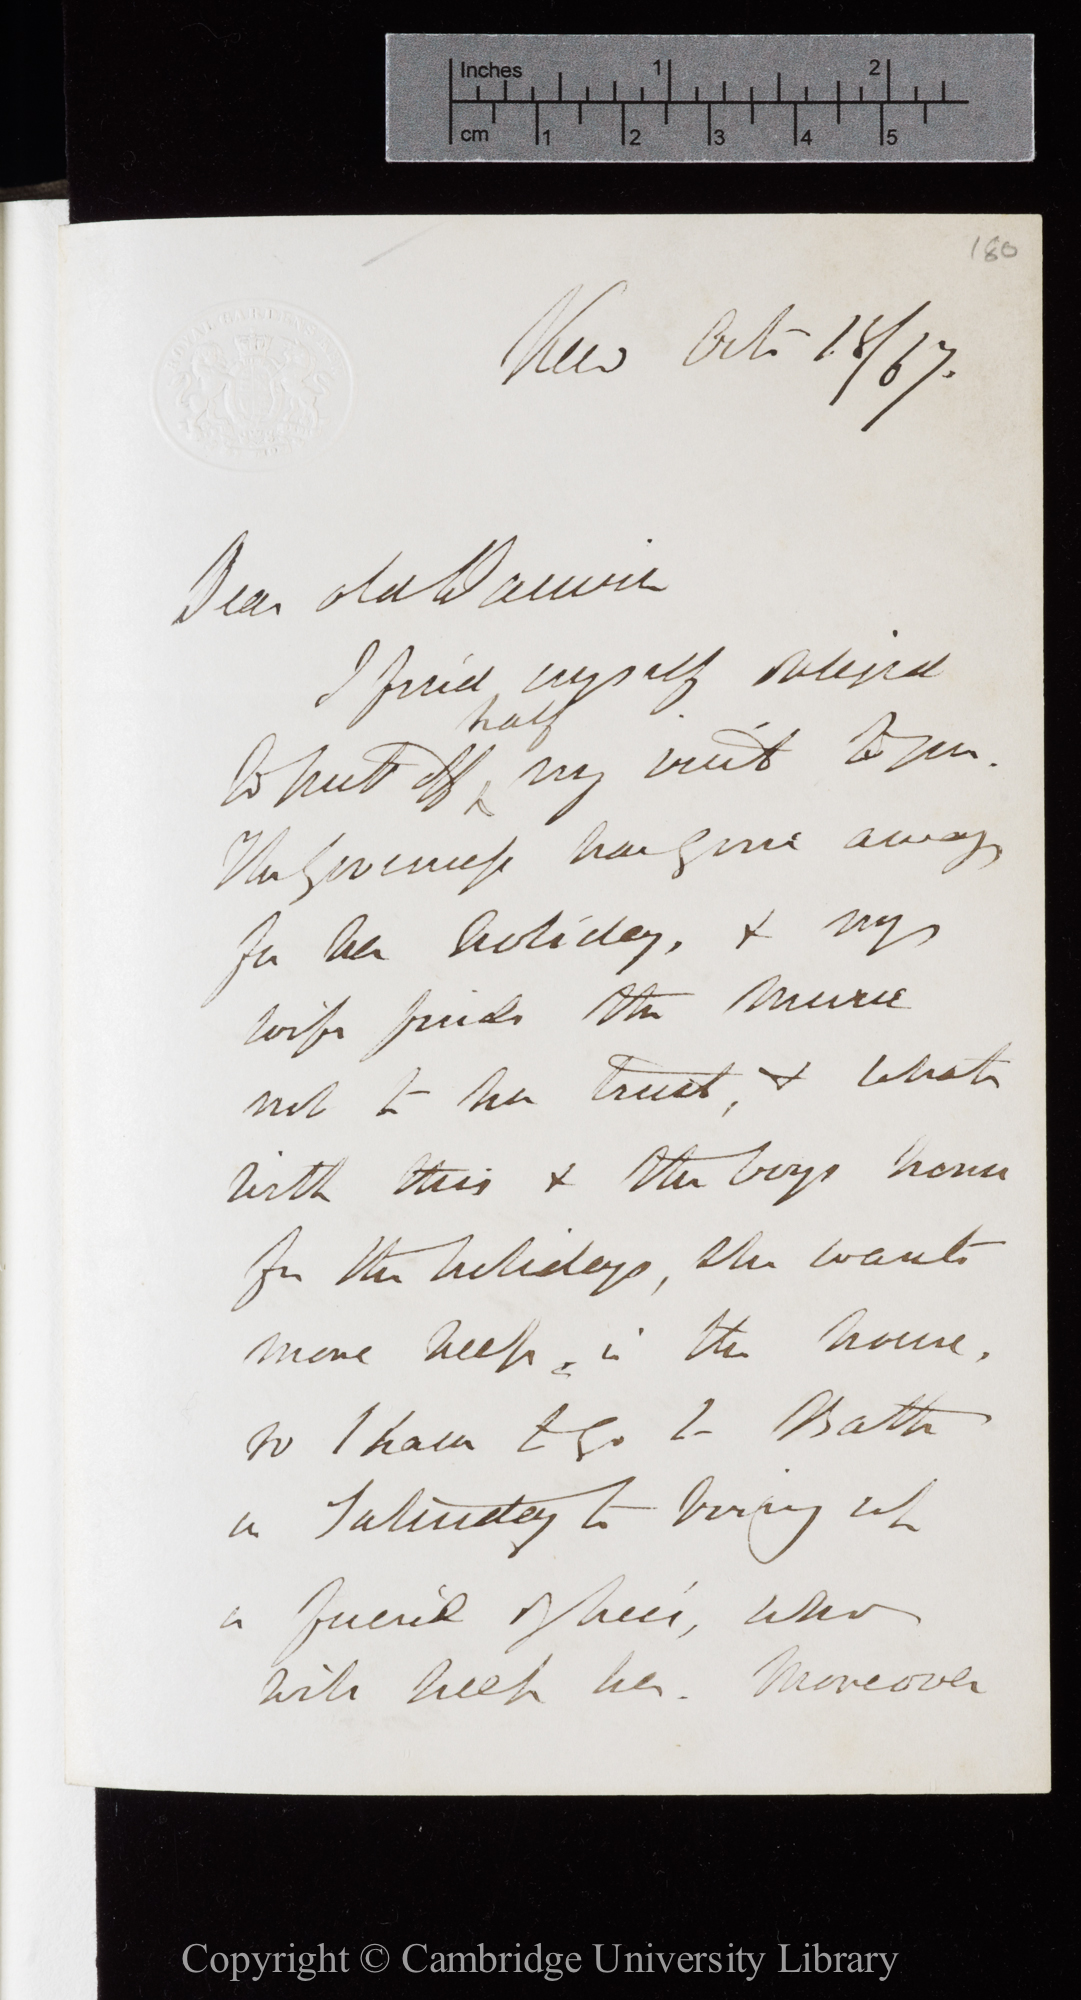 Inches 1 2
cm 1 2 3 4 5
180
ROYAL GARDENS
Kew Oct 18/67.
Dear old Darwin
I find myself obliged
half
to put off my visit to you.
The Governess has gone away
for her holiday, & my
wife finds the Nurse
not to her trust, & what
with this & the boys home
for the holidays, she wants
more help in the house,
so I have to go to Bath
on Saturday to bring up
a friend of hers, who
will help her. Moreover
Copyright © Cambridge University Library